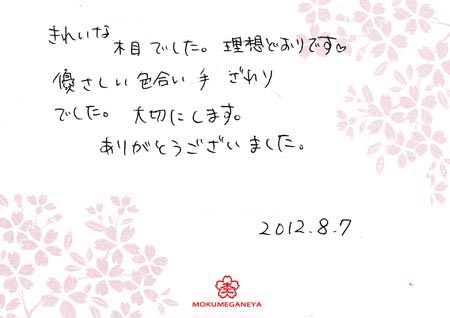 きれいな木目でした。理想どおりです♡
優さしい色合い手ざわり
でした。大切にします。
ありがとうございました。
2012.8.7
MOKUMEGANEYA